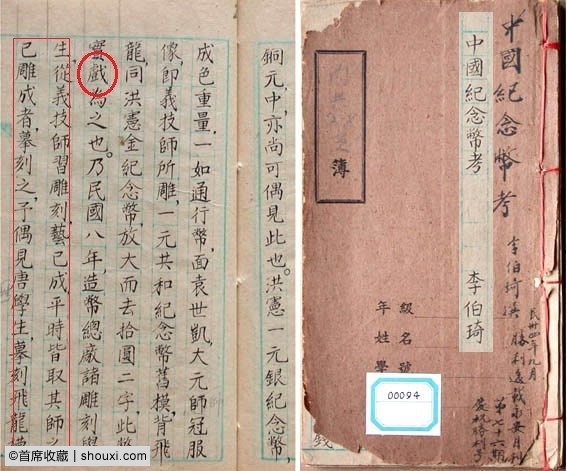 銅元中,亦尚可偶見此也。洪憲一元銀紀念幣,
成色重量,一如通行幣,面袁世凱大元帥冠服
像,即義技師所雕,一元共和紀念幣舊模,背飛
龍,同洪憲金紀念幣,放大而去拾圓二字,此幣
實戲為之也。乃民國八年,造幣總廠諸雕刻學
生,從義技師習雕刻,藝已成,平時皆取其師之
已雕成者摹刻之,予偶見唐學生,摹刻飛龍模
中國紀念幣考
李伯琦撰
民卅四年九月
永安月刊
第七十六期
慶祝勝利号
中國紀念幣考 李伯琦
簿
年級
姓名
學號
00094
©首席收藏 | shouxi.com